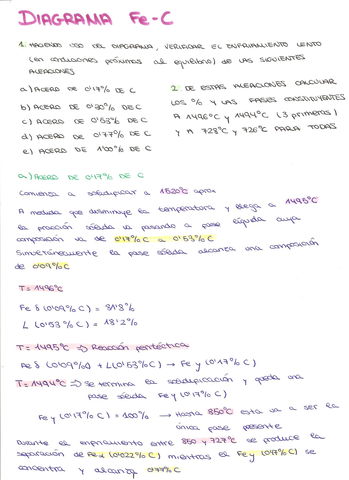 DIAGRAMA Fe-C
1. HACIENDO USO DEL DIAGRAMA, VERIFICAR EL ENFRIAMIENTO LENTO
(en condiciones próximas al equilibrio) DE LAS SIGUIENTES
ALEACIONES
a) ACERO DE 0'17% DE C
b) ACERO DE 0'30% DE C
c) ACERO DE 0'53% DE C
d) ACERO DE 0'77% DE C
e) ACERO DE 1'00% DE C
2. DE ESTAS ALEACIONES CALCULAR
LOS % Y LAS FASES CONSTITUYENTES
A 1496ºC y 1494ºC (3 primeras)
Y A 728ºC y 726ºC PARA TODAS
a) ACERO DE 0'17% DE C
Comienza a solidificar a 1520ºC aprox
A medida que disminuye la temperatura y llega a 1495ºC
la fracción sólida va pasando a fase líquida cuya
composición va de 0'17% C a 0'53% C
Simultáneamente la fase sólida alcanza una composición
de 0'09% C
T = 1496ºC
Fe δ (0'09% C) = 81'8%
L (0'53% C) = 18'2%
T = 1495ºC ⇒ Reacción peritéctica
Fe δ (0'09%) + L (0'53% C) → Fe γ (0'17% C)
T = 1494ºC ⇒ Se termina la solidificación y queda una
fase sólida Fe γ (0'17% C)
Fe γ (0'17% C) = 100% → Hasta 850ºC esta va a ser la
única fase presente
Durante el enfriamiento entre 850 y 727ºC se produce la
separación de Fe α (0'022% C) mientras el Fe γ (0'17% C) se
concentra y alcanza 0'77% C